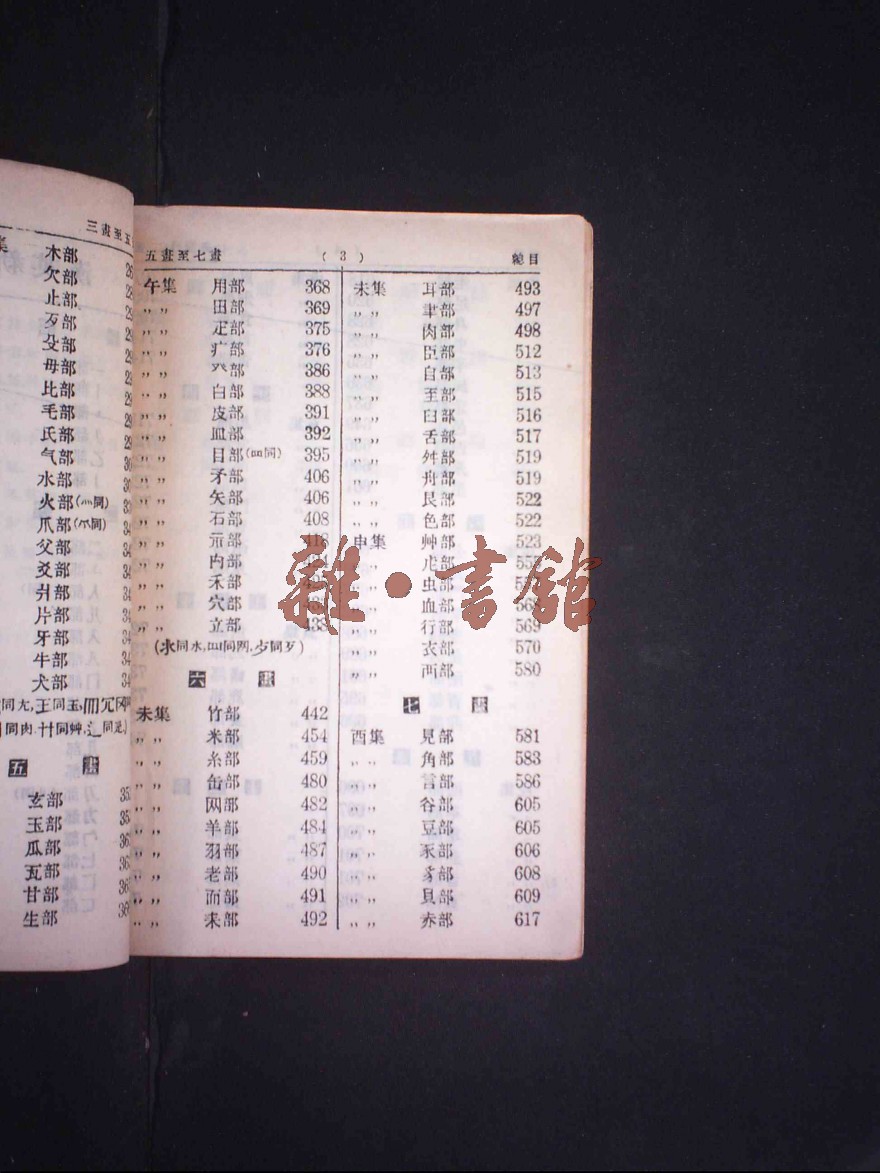 三畫至五
木部 26
欠部
止部
歹部
殳部
毋部
比部
毛部
氏部
气部
水部
火部(灬同)
爪部(爫同)
父部
爻部
爿部
片部
牙部
牛部
犬部
同尢,王同玉
同肉,艹同艸,辶同辵)
五 畫
玄部
玉部
瓜部
瓦部
甘部
生部
五畫至七畫 (3) 總目
午集 用部 368
〃〃 田部 369
〃〃 疋部 375
〃〃 疒部 376
〃〃 癶部 386
〃〃 白部 388
〃〃 皮部 391
〃〃 皿部 392
〃〃 目部(罒同) 395
〃〃 矛部 406
〃〃 矢部 406
〃〃 石部 408
〃〃 示部
〃〃 禸部
〃〃 禾部
〃〃 穴部
〃〃 立部 438
(氺同水,罒同网,歺同歹)
六 畫
未集 竹部 442
〃〃 米部 454
〃〃 糸部 459
〃〃 缶部 480
〃〃 网部 482
〃〃 羊部 484
〃〃 羽部 487
〃〃 老部 490
〃〃 而部 491
〃〃 耒部 492
未集 耳部 493
〃〃 聿部 497
〃〃 肉部 498
〃〃 臣部 512
〃〃 自部 513
〃〃 至部 515
〃〃 臼部 516
〃〃 舌部 517
〃〃 舛部 519
〃〃 舟部 519
〃〃 艮部 522
〃〃 色部 522
申集 艸部 523
〃〃 虍部
〃〃 虫部
〃〃 血部
〃〃 行部 569
〃〃 衣部 570
〃〃 襾部 580
七 畫
酉集 見部 581
〃〃 角部 583
〃〃 言部 586
〃〃 谷部 605
〃〃 豆部 605
〃〃 豕部 606
〃〃 豸部 608
〃〃 貝部 609
〃〃 赤部 617
雜·書館